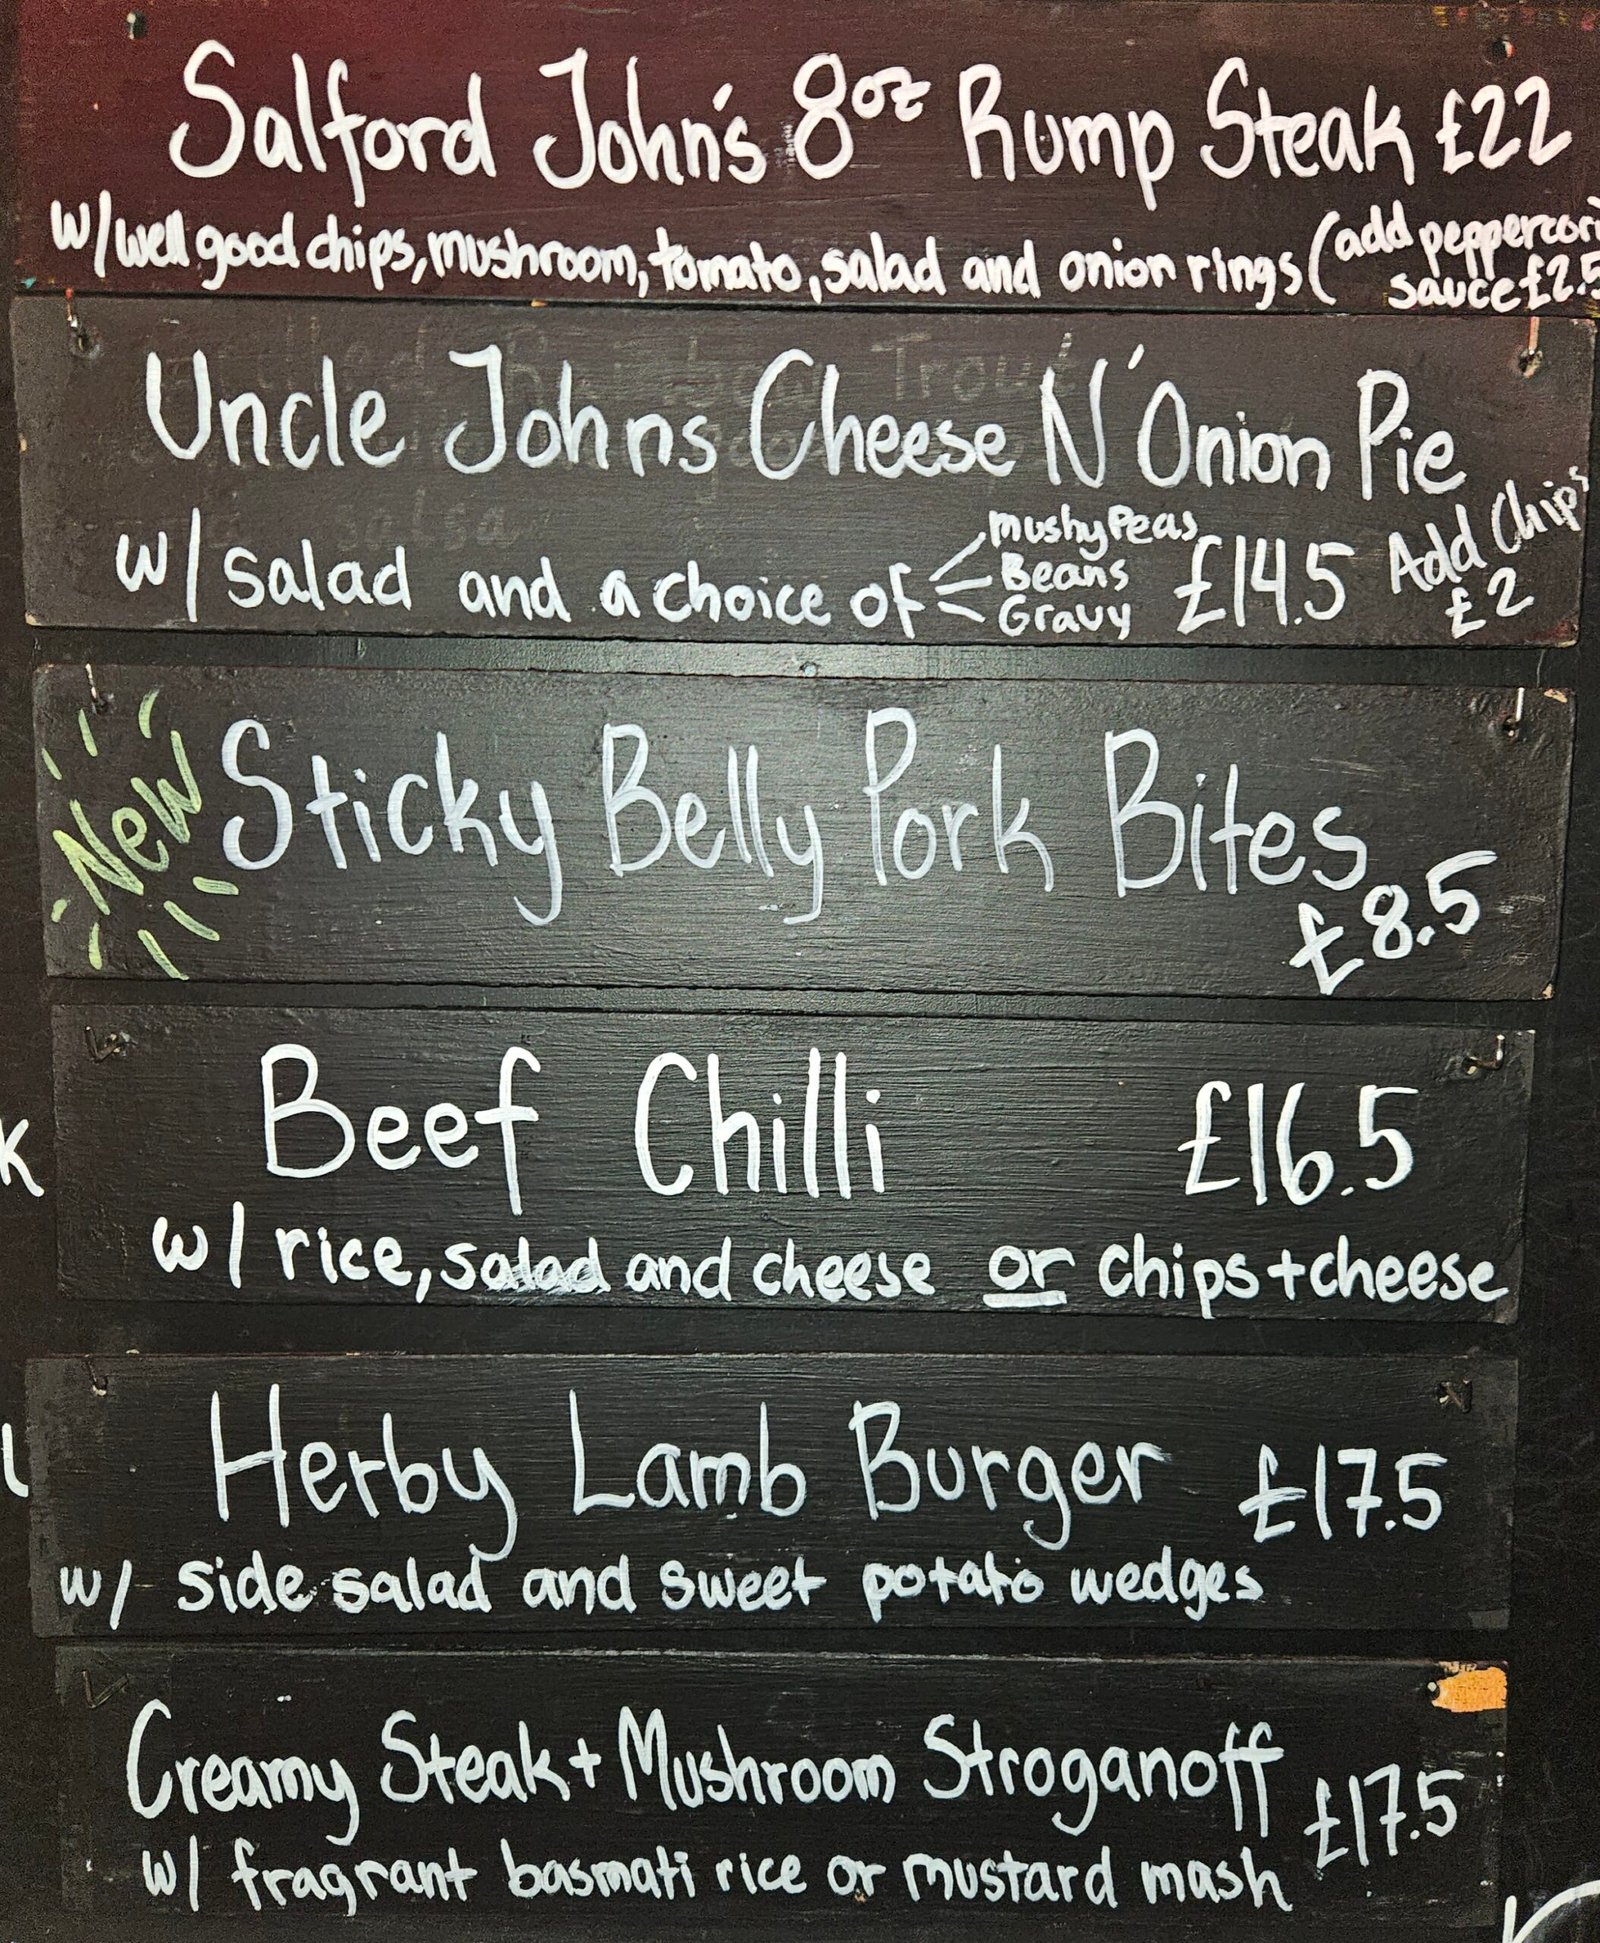 Salford John's 8oz Rump Steak £22
w/well good chips, mushroom, tomato, salad and onion rings (add peppercorn
sauce £2.5
Uncle Johns Cheese N' Onion Pie
w/ salad and a choice of
Mushy Peas
Beans
Gravy
£14.5
Add Chips
£2
New
Sticky Belly Pork Bites
£8.5
Beef Chilli £16.5
w/ rice, salad and cheese or chips + cheese
Herby Lamb Burger £17.5
w/ side salad and sweet potato wedges
Creamy Steak + Mushroom Stroganoff £17.5
w/ fragrant basmati rice or mustard mash